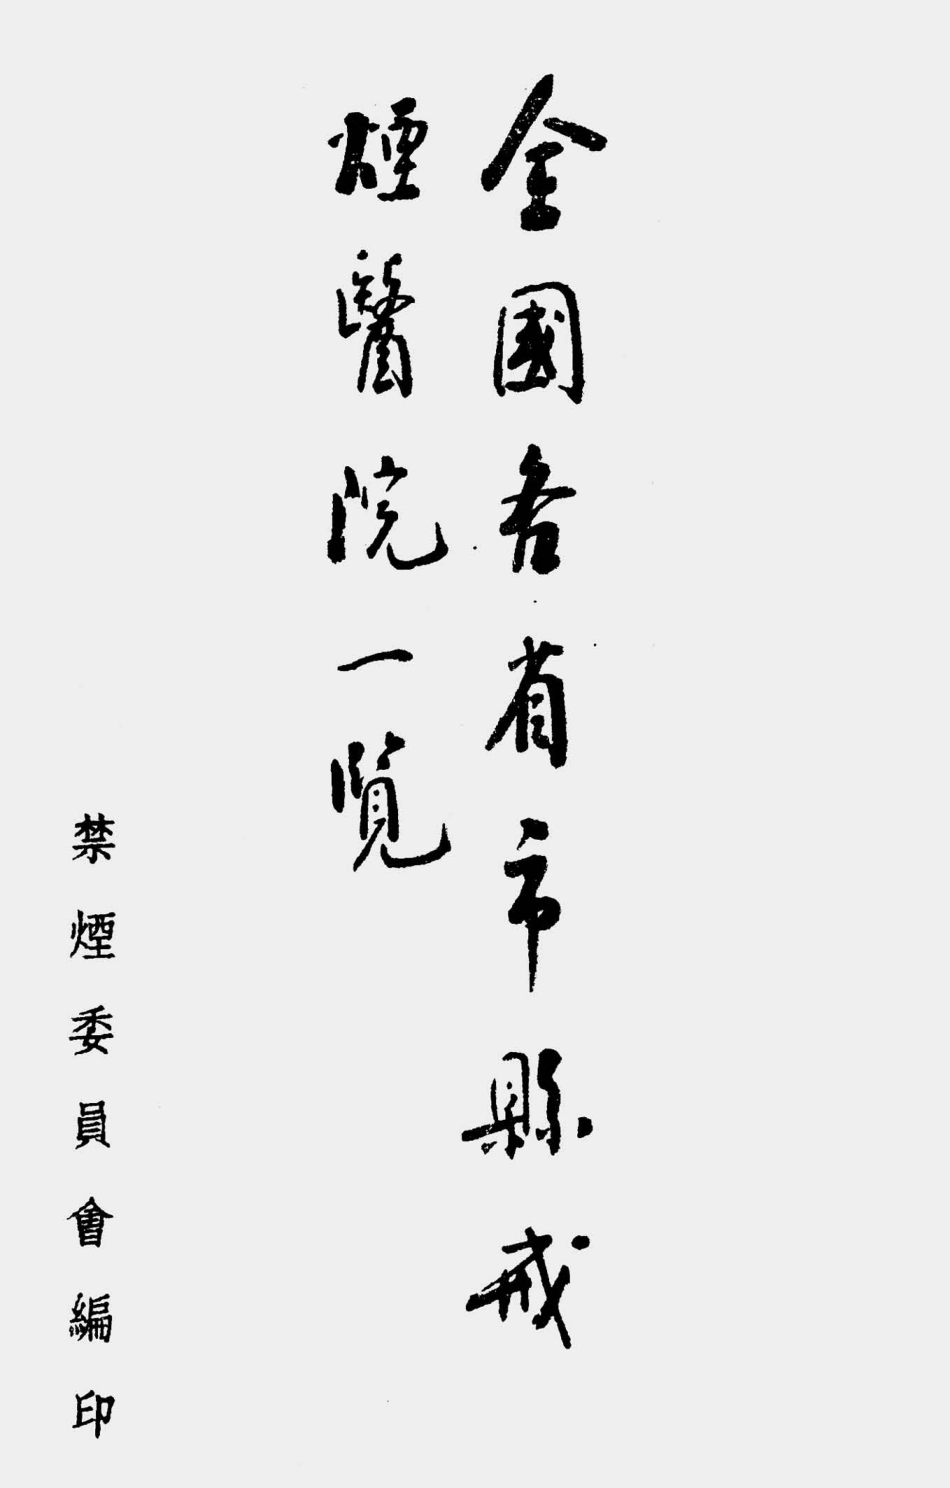 全國各省市縣戒
煙醫院一覽
禁煙委員會編印